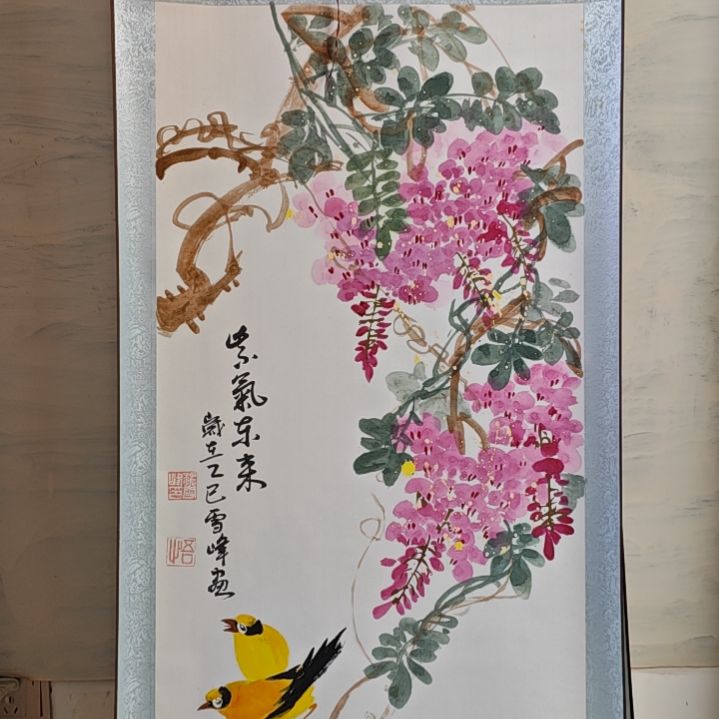 紫氣东来
歲在乙巳雪峰画